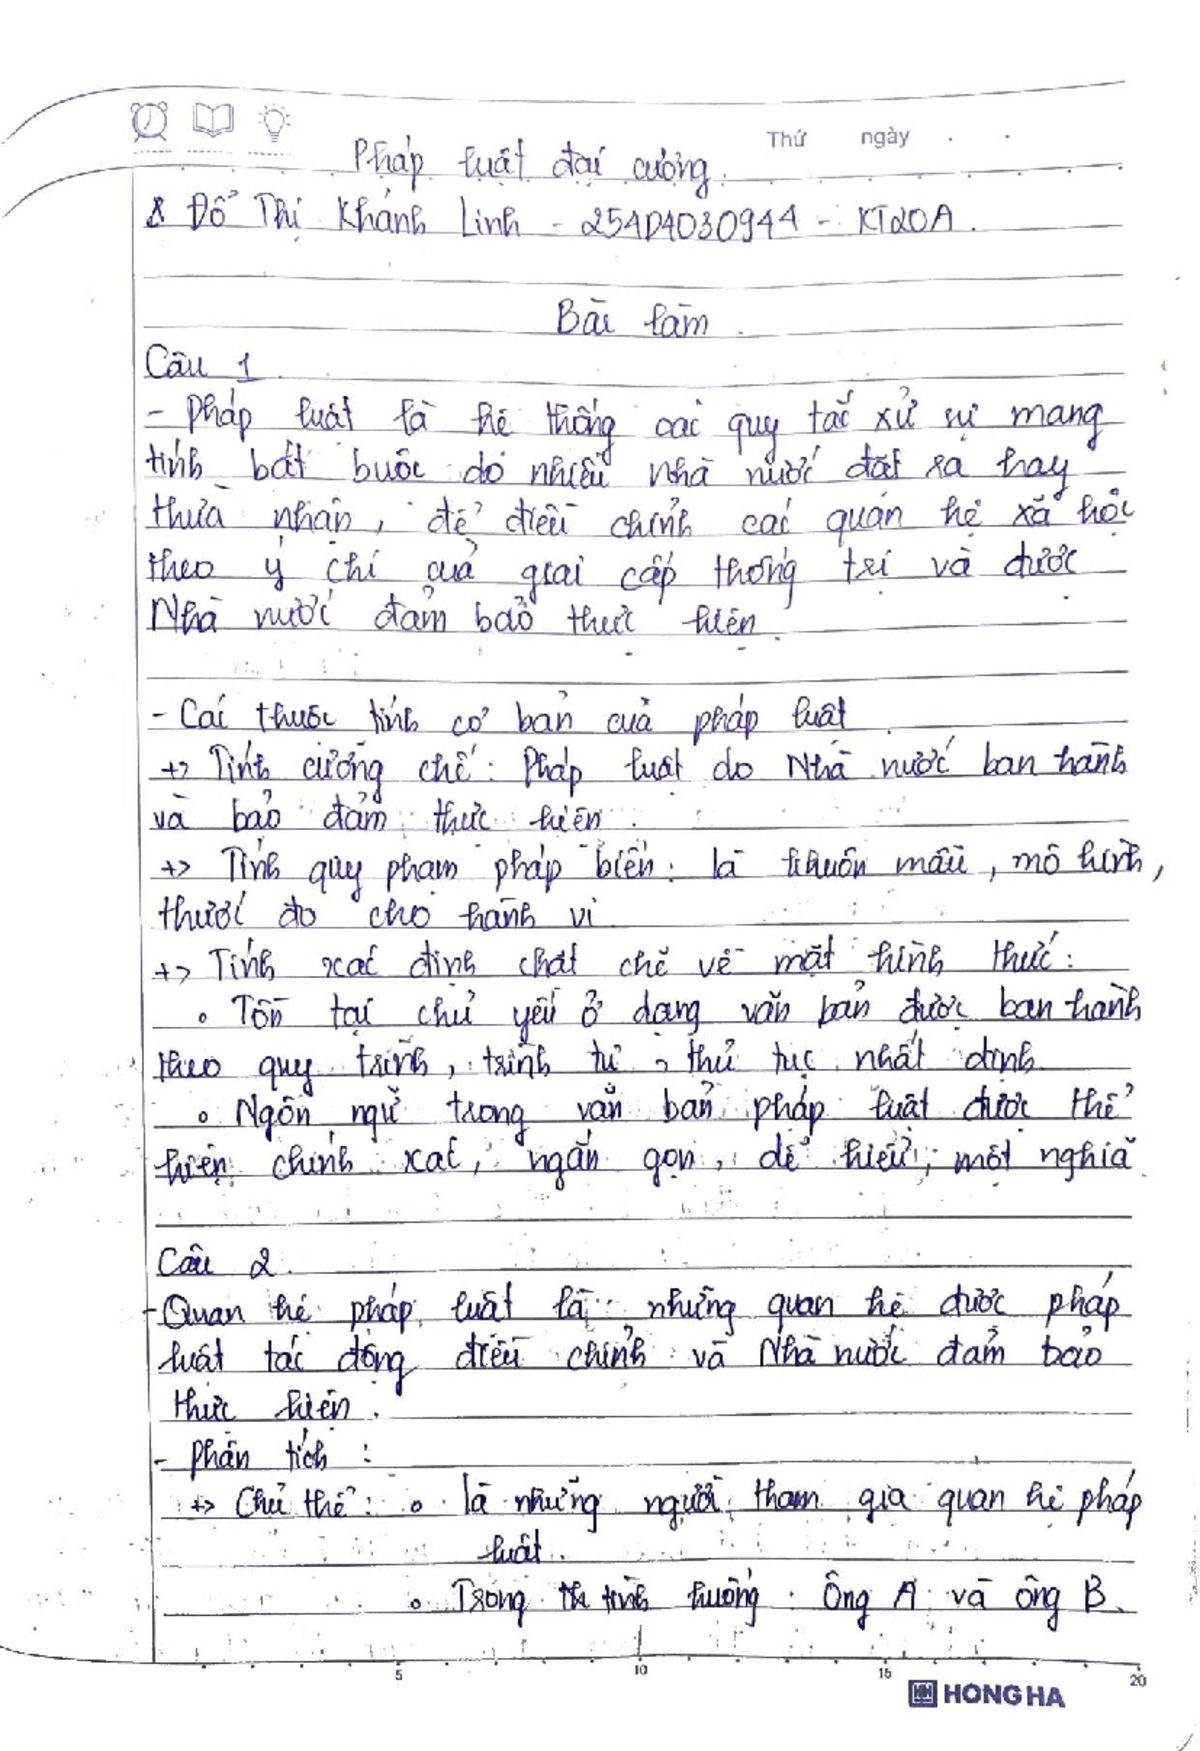 Thứ ngày
Pháp luật đại cương.
Đỗ Thị Khánh Linh - 254D4030944 - KT20A.
Bài làm.
Câu 1
- Pháp luật là hệ thống các quy tắc xử sự mang
tính bắt buộc do nhiều nhà nước đặt ra hay
thừa nhận, để điều chỉnh các quan hệ xã hội
theo ý chí của giai cấp thống trị và được
Nhà nước đảm bảo thực hiện.
- Các thuộc tính cơ bản của pháp luật
+> Tính cưỡng chế: Pháp luật do Nhà nước ban hành
và bảo đảm thực hiện.
+> Tính quy phạm pháp biến: là khuôn mẫu, mô hình,
thước đo cho hành vi
+> Tính xác định chặt chẽ về mặt hình thức:
o Tồn tại chủ yếu ở dạng văn bản được ban hành
theo quy trình, trình tự, thủ tục nhất định
o Ngôn ngữ trong văn bản pháp luật được thể
hiện chính xác, ngắn gọn, dễ hiểu, một nghĩa
Câu 2.
- Quan hệ pháp luật là những quan hệ được pháp
luật tác động điều chỉnh và Nhà nước đảm bảo
thực hiện.
- Phân tích:
+> Chủ thể: o là những người tham gia quan hệ pháp
luật.
o Trong tình huống: Ông A và ông B.
5 10 15 20
HONG HA